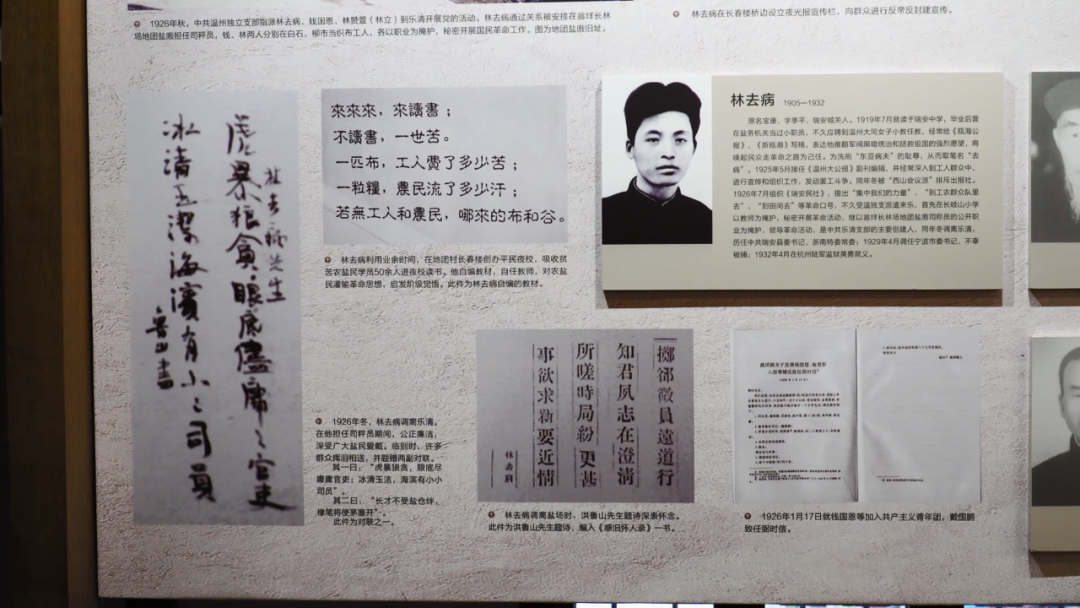 1926年秋，中共温州独立支部指派林去病、钱国恩、林赞萱（林立）到乐清开展党的活动。林去病通过关系被安排在翁垟长林
场地团盐廒担任司秤员，钱、林两人分别在白石、柳市当织布工人，各以职业为掩护，秘密开展国民革命工作。图为地团盐廒旧址。
林去病在长春楼桥边设立夜光报宣传栏，向群众进行反帝反封建宣传。
林去病先生
虎暴狼貪眼底儘庸庸官吏
冰清玉潔海濱有小小司員
魯山書
來來來，來讀書；
不讀書，一世苦。
一匹布，工人費了多少苦；
一粒糧，農民流了多少汗；
若無工人和農民，哪來的布和谷。
林去病利用业余时间，在地团村长春楼创办平民夜校，吸收贫
苦农盐民学员50余人进夜校读书。他自编教材，自任教师，对农盐
民灌输革命思想，启发阶级觉悟。此件为林去病自编的教材。
林去病 1905—1932
原名宝康，字季平，瑞安城关人。1919年7月就读于瑞安中学，毕业后曾
在盐务机关当过小职员，不久应聘到温州大同女子小教任教，经常给《瓯海公
报》、《新瓯潮》写稿，表达他推翻军阀黑暗统治和拯救祖国的强烈愿望，将
唤起民众走革命之路为己任。为洗刷“东亚病夫”的耻辱，从而取笔名“去
病”。1925年5月接任《温州大公报》副刊编辑，并经常深入到工人群众中，
进行宣传和组织工作，发动罢工斗争。同年冬被“西山会议派”排斥出报社。
1926年7月组织《瑞安民社》，提出“集中我们的力量”、“到工农群众队里
去”、“到田间去”等革命口号，不久受温独支派遣来乐，首先在长岐山小学
以教师为掩护，秘密开展革命活动，继以翁垟长林场地团盐廒司秤员的公开职
业为掩护，领导革命活动，是中共乐清支部的主要创建人，同年冬调离乐清，
历任中共瑞安县委书记，浙南特委常委；1929年4月调任宁波市委书记，不幸
被捕；1932年4月在杭州陆军监狱英勇就义。
1926年冬，林去病调离乐清。
在他担任司秤员期间，公正廉洁，
深受广大盐民爱戴。临别时，许多
群众挥泪相送，并题赠两副对联。
其一曰：“虎暴狼贪，眼底尽
庸庸官吏；冰清玉洁，海滨有小小
司员”。
其二曰：“长才不受盐仓绊，
椽笔将使茅塞开”。
此件为对联之一。
擲郤微員遠道行
知君夙志在澄清
所嗟時局紛更甚
事欲求新要近情
林去病
林去病调离盐场时，洪鲁山先生题诗深表怀念。
此件为洪鲁山先生题诗，编入《感旧怀人录》一书。
1926年1月17日就钱国恩等加入共产主义青年团，戴国鹏
致任弼时信。